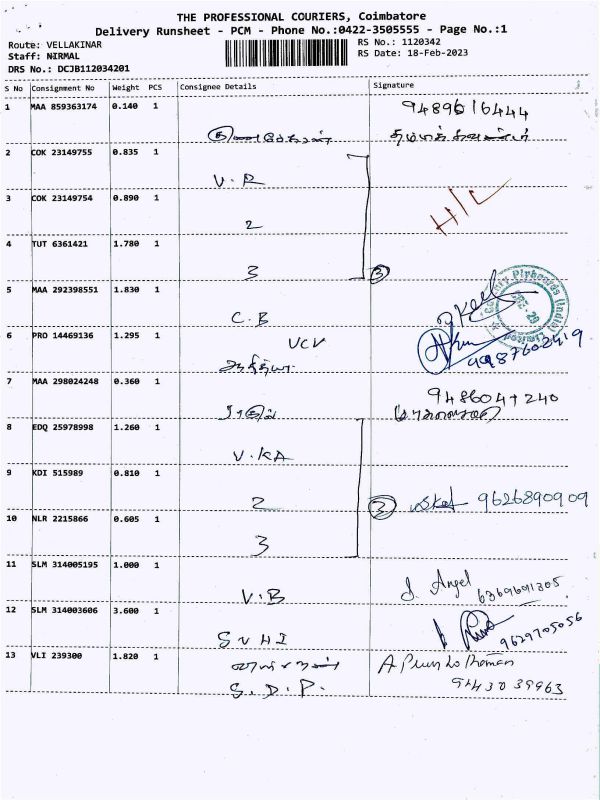 THE PROFESSIONAL COURIERS, Coimbatore
Delivery Runsheet - PCM - Phone No.:0422-3505555 - Page No.:1
Route: VELLAKINAR
RS No.: 1120342
Staff: NIRMAL
RS Date: 18-Feb-2023
DRS No.: DCJB112034201
S No Consignment No Weight PCS Consignee Details Signature
1 MAA 859363174 0.140 1
9489616444
2 COK 23149755 0.835 1
V.R
3 COK 23149754 0.890 1
2
H/L
4 TUT 6361421 1.780 1
3 3
5 MAA 292398551 1.830 1
C.B
6 PRO 14469136 1.295 1
VCV
7 MAA 298024248 0.360 1
8 EDQ 25978998 1.260 1
V.KA
9 KDI 515989 0.810 1
2 3 9626890909
10 NLR 2215866 0.605 1
3
11 SLM 314005195 1.000 1
V.B J. Angel
12 SLM 314003606 3.600 1
S V H I 9629705056
13 VLI 239300 1.820 1
S. D. P. 9443039963